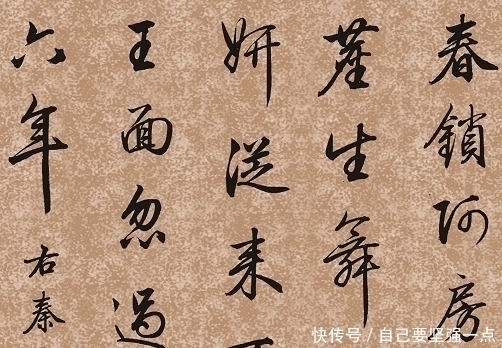 春鎖阿房
塵生舞
妍從來
王面忽過
六年
右秦
快传号／自己要坚强一点